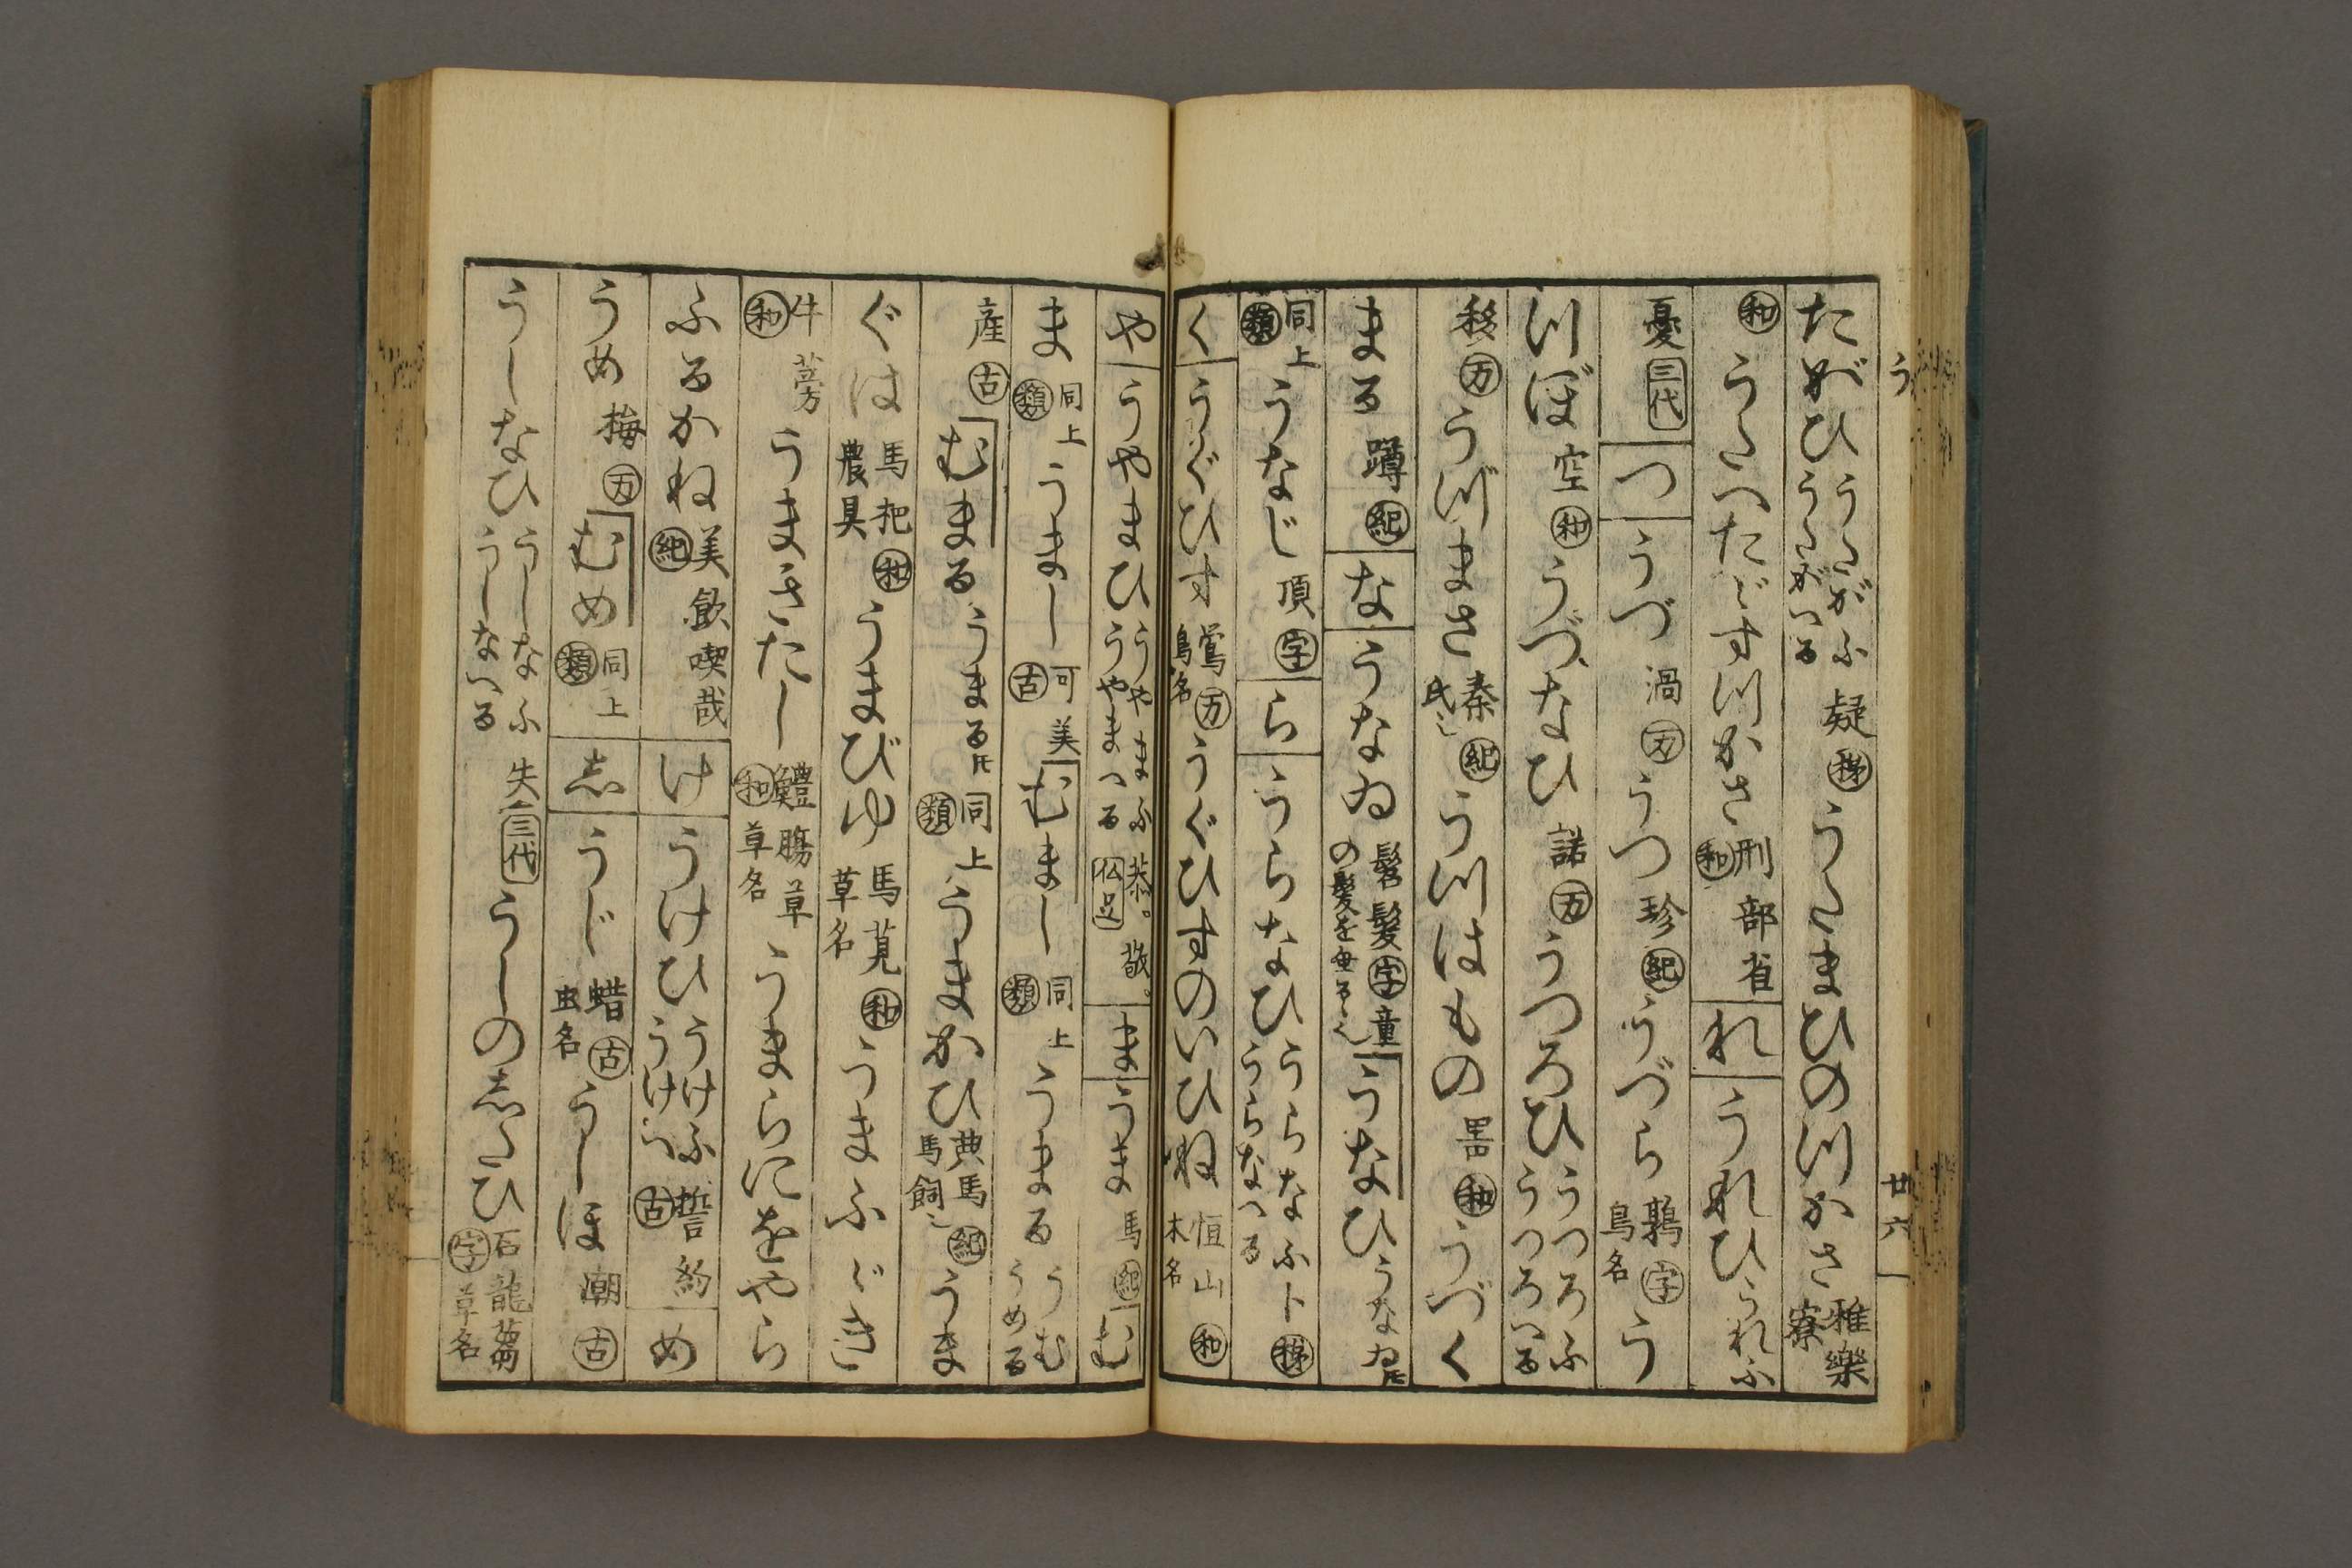 う
廿六
たがひ うたがふ うたがへる 疑 ㊢ うたまひの川かさ 雅樂寮
和 うたへたゞす川かさ 刑部省 和 れ うれひ うれふ
憂 三代 つ うづ 渦 万 うつ 珍 紀 うづら 鶉 鳥名 字 う
川ぼ 空 和 うづなひ 諾 万 うつろひ うつろふ うつろへる
移 万 うづまさ 秦氏 紀 う川はもの 器 和 うづく
まる 蹲 紀 な うなゐ 髫髮 字 童の髪を垂るゝ うなひ うなゐ
同上 類 うなじ 頂 字 ら うらなひ うらなふ うらなへる 卜
く うぐひす 鶯 鳥名 万 うぐひすのいひね 恒山 木名 和
や うやまひ うやまふ うやまへる 恭 仏足 敬 ま うま 馬 紀 む
ま 同上 類 うまし 可美 古 むまし 同上 類 うまる うむ うめる
産 古 むまる うまる 同上 類 うまかひ 典馬 馬飼 紀 うま
ぐは 馬把 農具 和 うまびゆ 馬莧 草名 和 うまふゞき
牛蒡 和 うまきたし 鱧膓草 草名 和 うまらにをやら
ふるかね 美飲喫哉 紀 け うけひ うけふ うけへ 誓約 古 め
うめ 梅 万 むめ 同上 類 志 うじ 蜡 虫名 古 うしほ 潮 古
うしなひ うしなふ うしなへる 失 三代 うしの志たひ 石龍芻 草名 字